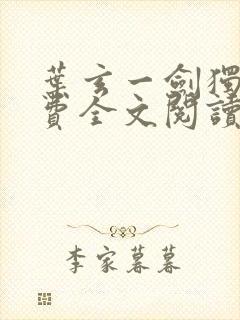 葉玄一劍獨
費全文閱讀
李家暮暮